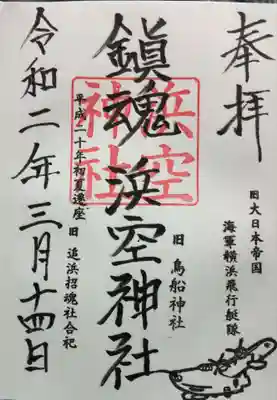 奉拝
旧大日本帝国
海軍横浜飛行艇隊
鎮魂 浜空神社
浜空
神社
旧 鳥船神社
平成二十年初夏遷座
旧 追浜招魂社合祀
令和二年三月十四日